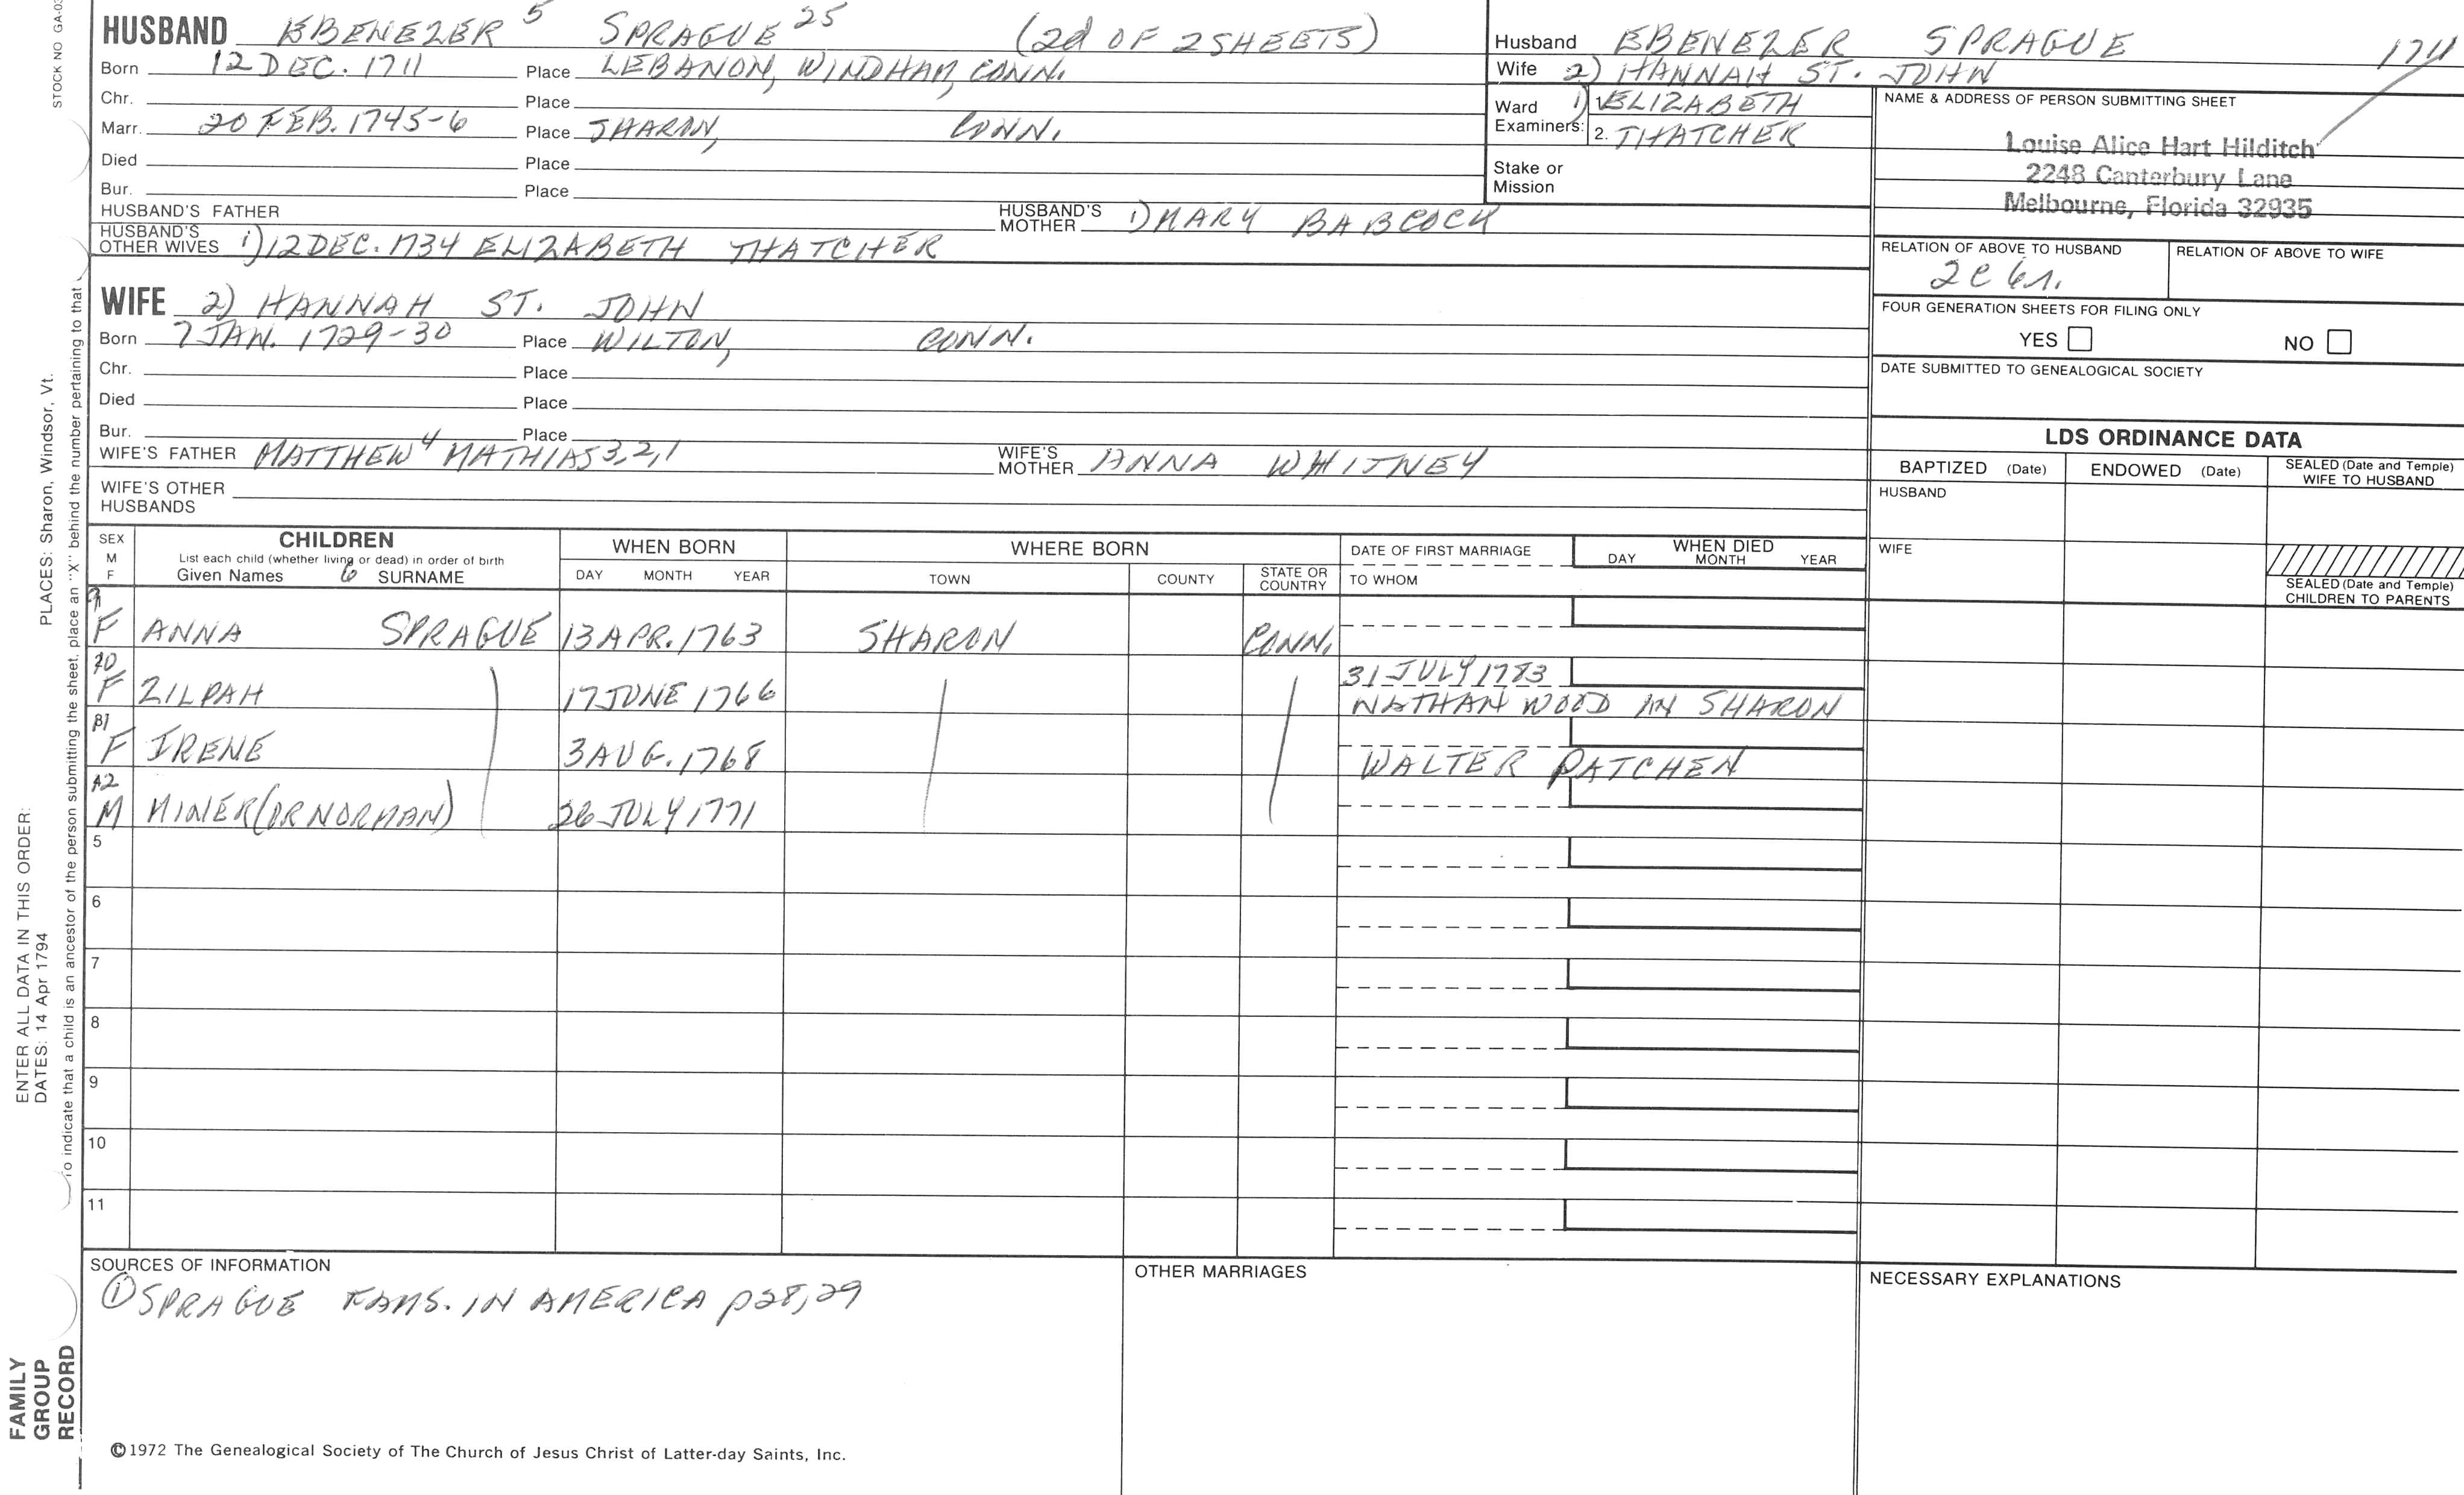 STOCK NO GA-03
HUSBAND EBENEZER 5 SPRAGUE 25 (2d OF 2 SHEETS)
Born 12 DEC. 1711 Place LEBANON, WINDHAM, CONN.
Chr. Place
Marr. 20 FEB. 1745-6 Place SHARON, CONN.
Died Place
Bur. Place
HUSBAND'S FATHER HUSBAND'S MOTHER 1) MARY BABCOCK
HUSBAND'S OTHER WIVES 1) 12 DEC. 1734 ELIZABETH THATCHER
WIFE 2) HANNAH ST. JOHN
Born 7 JAN. 1729-30 Place WILTON, CONN.
Chr. Place
Died Place
Bur. Place
WIFE'S FATHER MATTHEW 4 MATHIAS 3,2,1 WIFE'S MOTHER ANNA WHITNEY
WIFE'S OTHER HUSBANDS
Husband EBENEZER SPRAGUE 1711
Wife 2) HANNAH ST. JOHN
Ward Examiners: 1) 1. ELIZABETH
2. THATCHER
Stake or Mission
NAME & ADDRESS OF PERSON SUBMITTING SHEET
Louise Alice Hart Hilditch
2248 Canterbury Lane
Melbourne, Florida 32935
RELATION OF ABOVE TO HUSBAND RELATION OF ABOVE TO WIFE
2c 6r.
FOUR GENERATION SHEETS FOR FILING ONLY
YES NO
DATE SUBMITTED TO GENEALOGICAL SOCIETY
LDS ORDINANCE DATA
BAPTIZED (Date) ENDOWED (Date) SEALED (Date and Temple) WIFE TO HUSBAND
HUSBAND
WIFE
SEALED (Date and Temple) CHILDREN TO PARENTS
SEX M F CHILDREN WHEN BORN WHERE BORN DATE OF FIRST MARRIAGE WHEN DIED
List each child (whether living or dead) in order of birth
Given Names 6 SURNAME DAY MONTH YEAR TOWN COUNTY STATE OR COUNTRY TO WHOM DAY MONTH YEAR
9
F ANNA SPRAGUE 13 APR. 1763 SHARON CONN.
10 31 JULY 1783
F ZILPAH 17 JUNE 1766 NATHAN WOOD IN SHARON
11
F IRENE 3 AUG. 1768 WALTER PATCHEN
12
M MINER (OR NORMAN) 26 JULY 1771
5
6
7
8
9
10
11
SOURCES OF INFORMATION OTHER MARRIAGES NECESSARY EXPLANATIONS
① SPRAGUE FAMS. IN AMERICA p28, 29
©1972 The Genealogical Society of The Church of Jesus Christ of Latter-day Saints, Inc.
FAMILY GROUP RECORD
ENTER ALL DATA IN THIS ORDER:
DATES: 14 Apr 1794
PLACES: Sharon, Windsor, Vt.
To indicate that a child is an ancestor of the person submitting the sheet, place an "X" behind the number pertaining to that